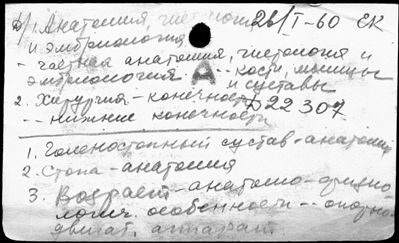 1. Анатомия, гистология 26/I-60 ЕК
и эмбриология
- частная анатомия, гистология и
эмбриология А -- кости, мышцы
и суставы
2. Хирургия - конечност Д22307
-- нижние конечности
1. Голеностопный сустав - анатомия
2. Стопа - анатомия
3. Возраст - анатомо-физио-
логич. особенности -- опорно-
двигат. аппарат